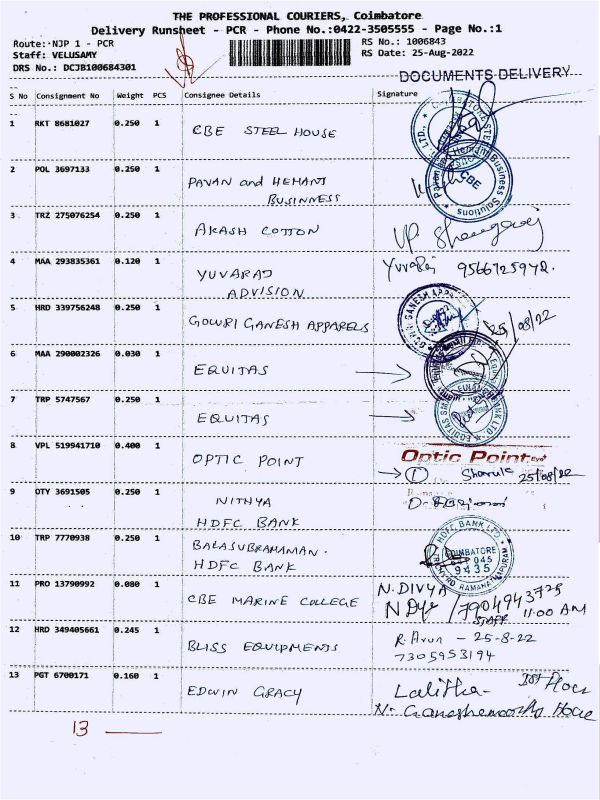 THE PROFESSIONAL COURIERS, Coimbatore
Delivery Runsheet - PCR - Phone No.:0422-3505555 - Page No.:1
Route: NJP 1 - PCR RS No.: 1006843
Staff: VELUSAMY RS Date: 25-Aug-2022
DRS No.: DCJB100684301
DOCUMENTS DELIVERY
S No Consignment No Weight PCS Consignee Details Signature
1 RKT 8681027 0.250 1 CBE STEEL HOUSE
2 POL 3697133 0.250 1 PAVAN and HEMANT
BUSINNESS
Business Solutions
CBE
3 TRZ 275076254 0.250 1 AKASH COTTON
4 MAA 293835361 0.120 1 YUVARAJ
ADVISION
Yuvaraj
5 HRD 339756248 0.250 1 GOWRI GANESH APPARELS
25/08/22
6 MAA 290002326 0.030 1 EQUITAS
7 TRP 5747567 0.250 1 EQUITAS
8 VPL 519941710 0.400 1 OPTIC POINT
Optic Point Eye+
1 25/08/22
9 OTY 3691505 0.250 1 NITHYA
HDFC BANK
10 TRP 7770938 0.250 1 BALASUBRAMANIAN.
HDFC BANK
HDFC BANK LTD.
COIMBATORE
9435
11 PRO 13790992 0.080 1 CBE MARINE COLLEGE
N. DIVYA
/7904943725
STAFF 11.00 AM
12 HRD 349405661 0.245 1 BLISS EQUIPMENTS
R. Arun - 25-8-22
7305953194
13 PGT 6700171 0.160 1 EDWIN GRACY
Lalitha Ist Floor
13